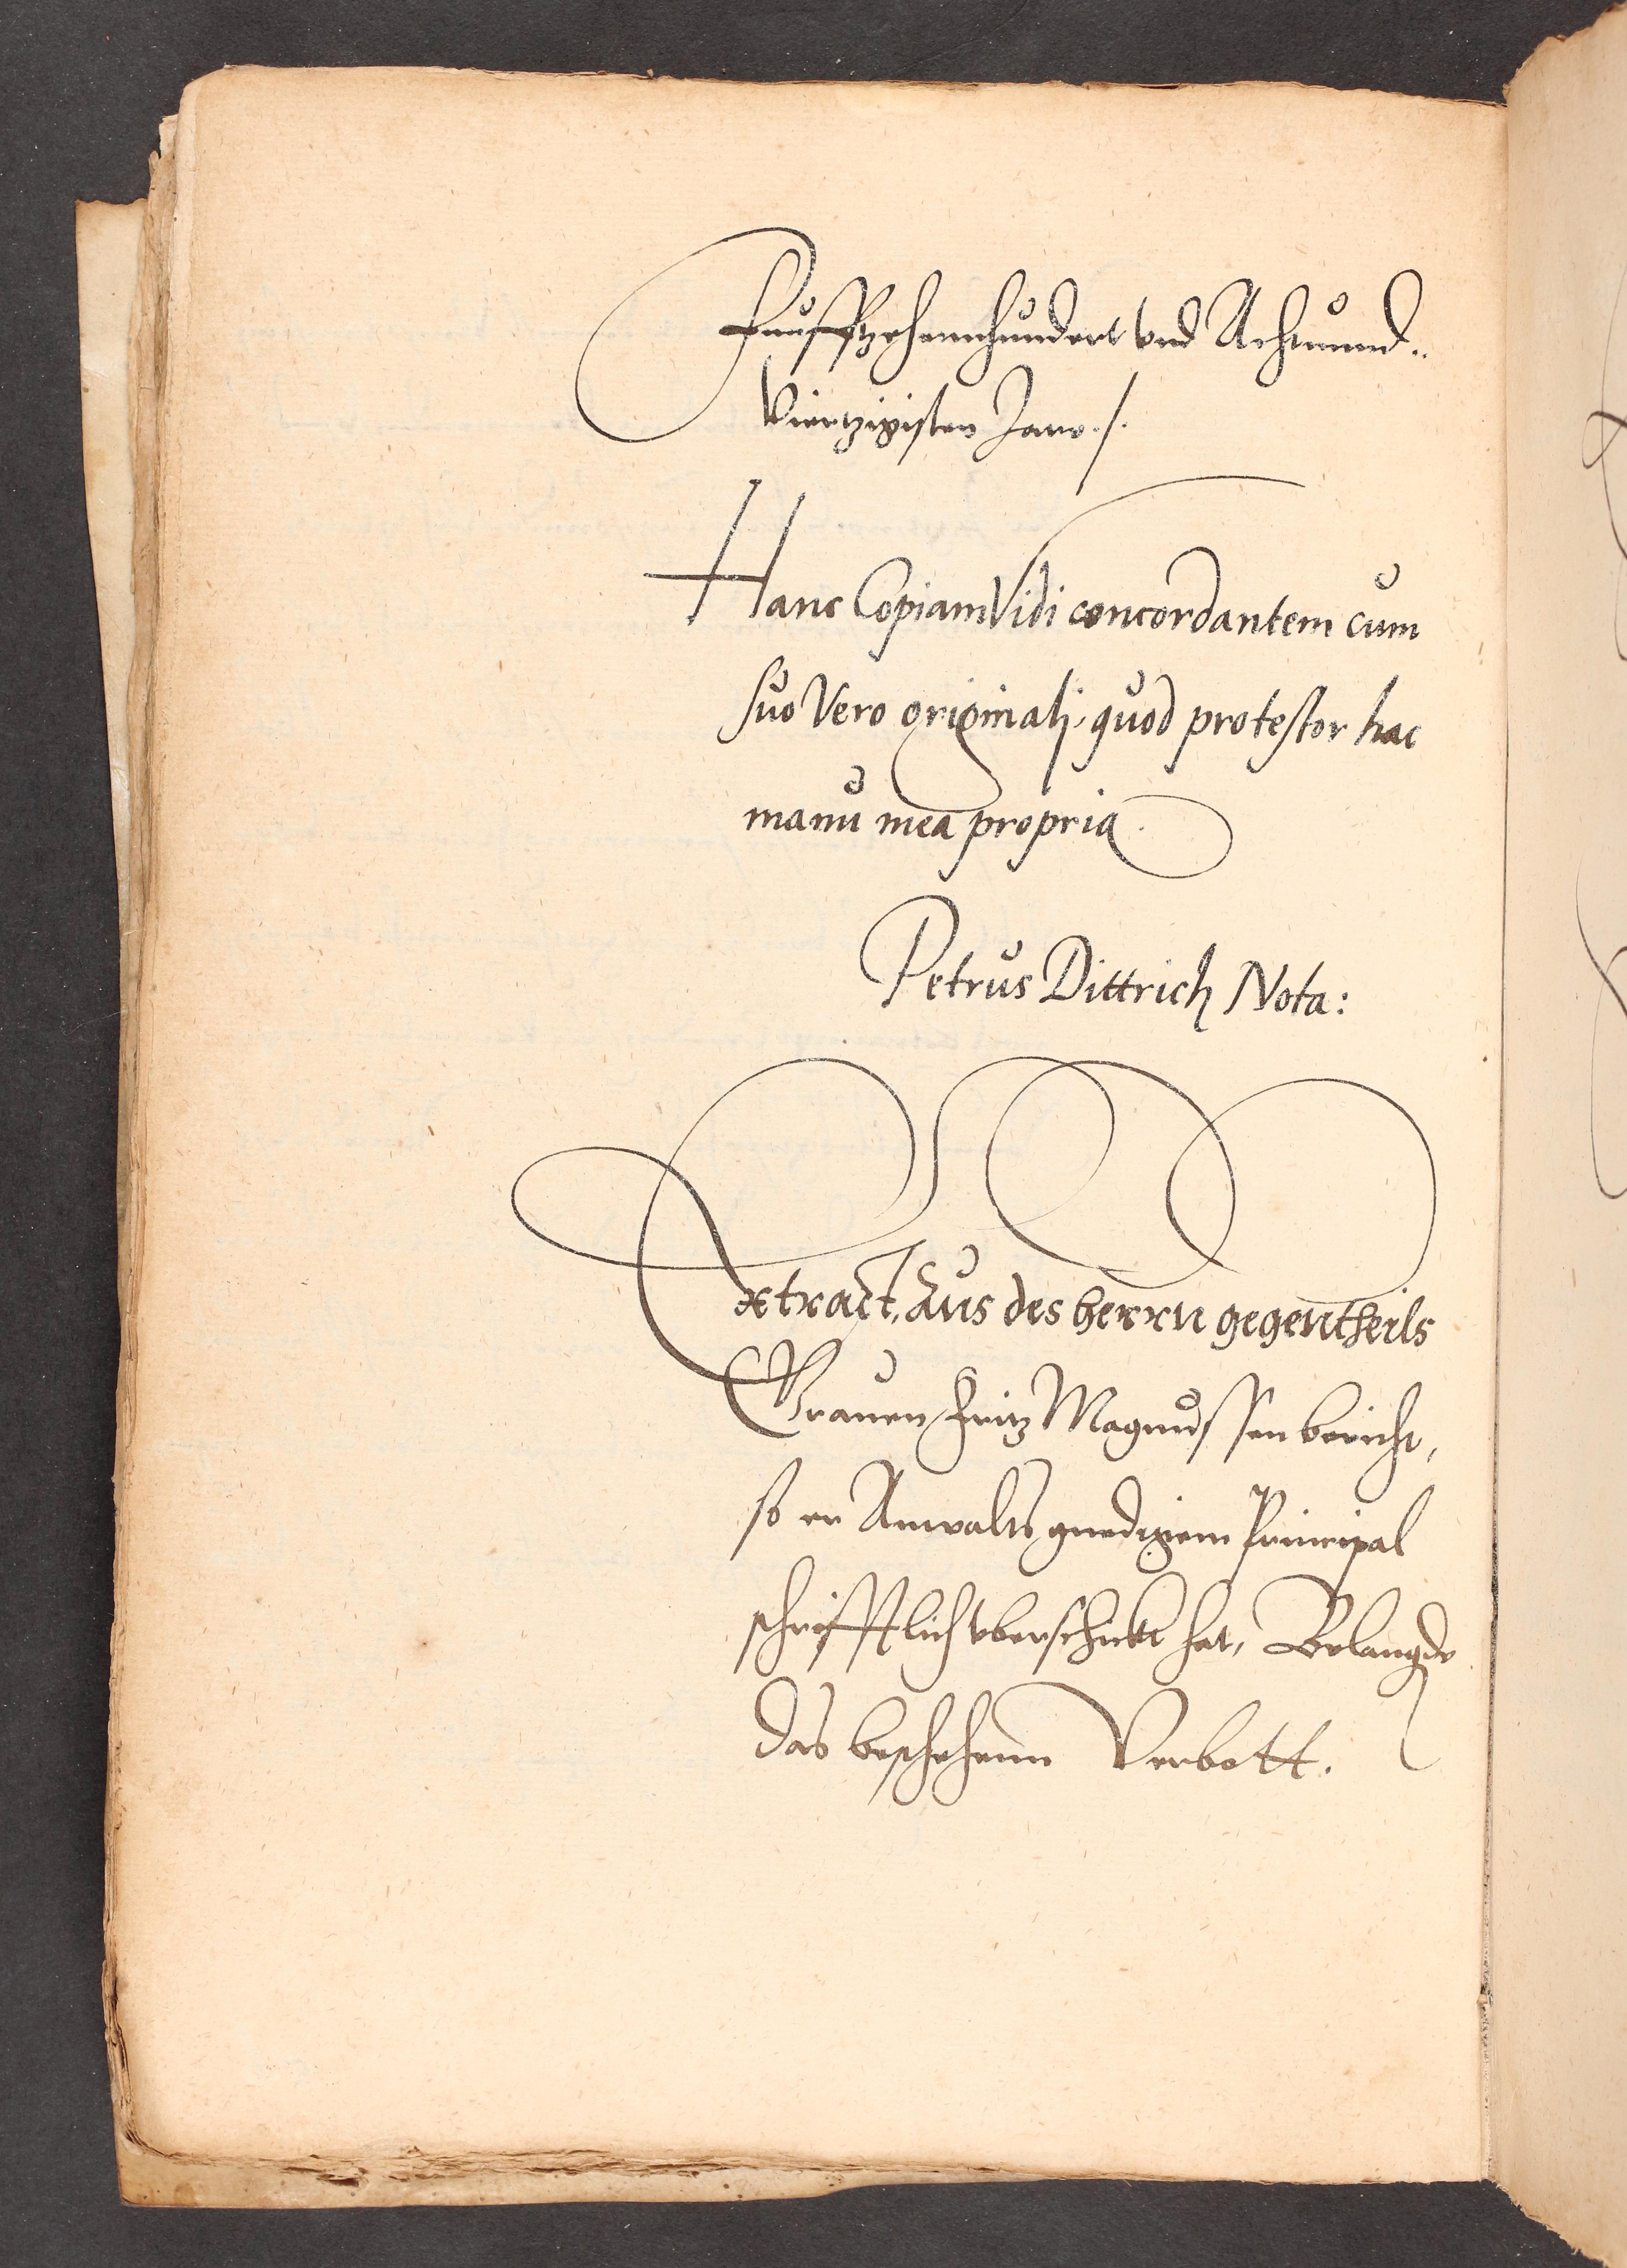 Funfftzehennhundert vnd Achtunnd..
Viertzigisten Jare./.
Hanc Copiam Vidi concordantem cum
suo Vero originali, quod protestor hac
manu mea propria.
Petrus Dittrich Nota:
Extract, Aus des herrn gegentheils
Grauen Fritz Magnussen bericht,
so er Anwalts gnedigem Principal
schrifftlich vberschickt hat, Belangde
das beschehenn Verbott.